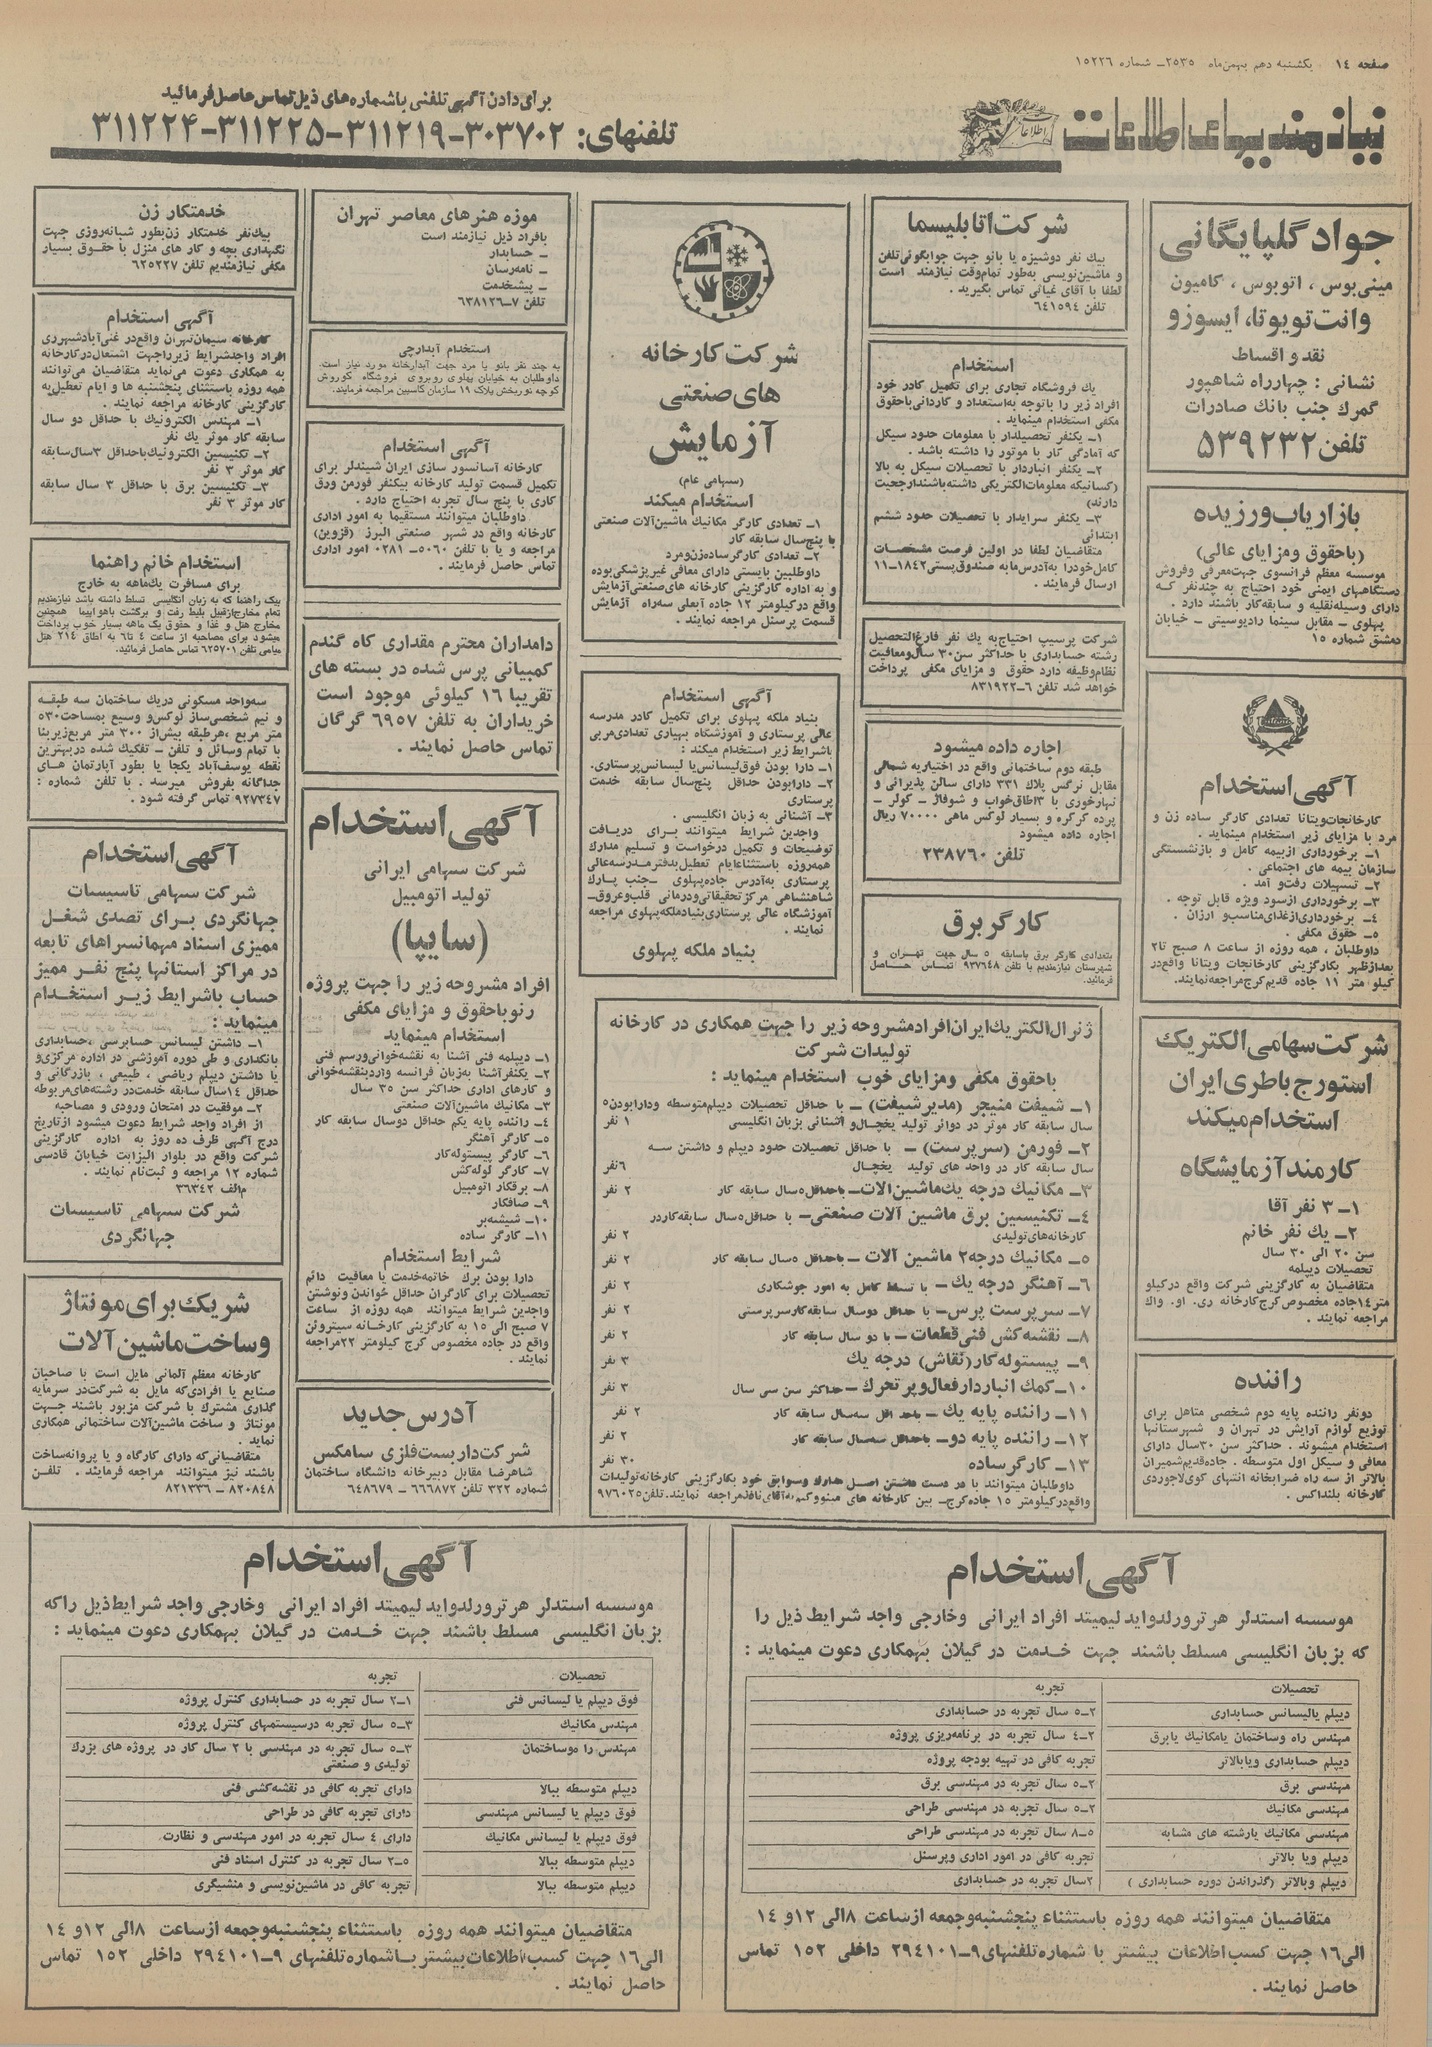 صفحه ١٤ یکشنبه دهم بهمن‌ماه ٢٥٣٥ـ شماره ١٥٢٢٦
نیازمندیهای اطلاعات
برای دادن آگهی تلفنی با شماره‌های ذیل تماس حاصل فرمائید
تلفنهای: ٣٠٣٧٠٢-٣١١٢١٩-٣١١٢٢٥-٣١١٢٢٤
جواد گلپایگانی
مینی‌بوس ، اتوبوس ، کامیون
وانت تویوتا، ایسوزو
نقد و اقساط
نشانی : چهارراه شاهپور
گمرک جنب بانک صادرات
تلفن ٥٣٩٢٣٢
بازاریاب ورزیده
(باحقوق ومزایای عالی)
موسسه معظم فرانسوی جهت‌معرفی وفروش
دستگاههای ایمنی خود احتیاج به چندنفر که
دارای وسیله‌نقلیه و سابقه‌کار باشند دارد .
پهلوی – مقابل سینما رادیوسیتی – خیابان
دمشق شماره ١٥
آگهی استخدام
کارخانجات‌ویتانا تعدادی کارگر ساده زن و
مرد با مزایای زیر استخدام مینماید.
١ـ برخورداری ازبیمه کامل و بازنشستگی
سازمان بیمه های اجتماعی .
٢ـ تسهیلات رفت‌و آمد .
٣ـ برخورداری ازسود ویژه قابل توجه .
٤ـ برخورداری‌ازغذای‌مناسب‌و ارزان .
٥ـ حقوق مکفی .
داوطلبان ، همه روزه از ساعت ٨ صبح تا٢
بعدازظهر بکارگزینی کارخانجات ویتانا واقع‌در
کیلو متر ١١ جاده قدیم‌کرج‌مراجعه‌نمایند.
شرکت سهامی الکتریک
استورج باطری ایران
استخدام میکند
کارمند آزمایشگاه
١ـ ٣ نفر آقا
٢ـ یک نفر خانم
سن ٢٠ الی ٣٠ سال
تحصیلات دیپلمه
متقاضیان به کارگزینی شرکت واقع درکیلو
متر١٤جاده مخصوص‌کرج‌کارخانه ری. او. واک
مراجعه نمایند .
راننده
دونفر راننده پایه دوم شخصی متاهل برای
توزیع لوازم آرایش در تهران و شهرستانها
استخدام میشوند . حداکثر سن ٣٠سال دارای
معافی و سیکل اول متوسطه . جاده‌قدیم‌شمیران
بالاتر از سه راه ضرابخانه انتهای کوی‌لاجوردی
کارخانه بلنداکس.
شرکت اتابلیسما
بیک نفر دوشیزه یا بانو جهت جوابگوئی‌تلفن
و ماشین‌نویسی به‌طور تمام‌وقت نیازمند است
لطفا با آقای غیاثی تماس بگیرید .
تلفن ٦٤١٥٩٤
استخدام
یک فروشگاه تجاری برای تکمیل کادر خود
افراد زیر را باتوجه به‌استعداد و کاردانی‌باحقوق
مکفی استخدام مینماید .
١ـ یکنفر تحصیلدار با معلومات حدود سیکل
که آمادگی کار با موتور را داشته باشد .
٢ـ یکنفر انباردار با تحصیلات سیکل به بالا
(کسانیکه معلومات‌الکتریکی داشته‌باشندارجعیت
دارند)
٣ـ یکنفر سرایدار با تحصیلات حدود ششم
ابتدائی
متقاضیان لطفا در اولین فرصت مشخصات
کامل‌خودرا به‌آدرس‌ما‌به صندوق‌پستی١٨٤٢ـ١١
ارسال فرمایند .
شرکت پرسیپ احتیاج‌به یک نفر فارغ‌التحصیل
رشته حسابداری با حداکثر سن٣٠ سال‌ومعافیت
نظام‌وظیفه دارد حقوق و مزایای مکفی پرداخت
خواهد شد تلفن ٦ـ٨٣١٩٢٢
اجاره داده میشود
طبقه دوم ساختمانی واقع در اختیاریه شمالی
مقابل نرگس پلاک ٣٣١ دارای سالن پذیرائی و
نهارخوری با ٣اطاق‌خواب و شوفاژ – کولر –
پرده کرکره و بسیار لوکس ماهی ٧٠٠٠٠ ریال
اجاره داده میشود
تلفن ٢٣٨٧٦٠
کارگر برق
بتعدادی کارگر برق باسابقه ٥ سال جهت تهران و
شهرستان نیازمندیم با تلفن ٩٣٧٦٤٨ تماس حاصل
فرمائید.
شرکت کارخانه
های صنعتی
آزمایش
(سهامی عام)
استخدام میکند
١ـ تعدادی کارگر مکانیک ماشین‌آلات صنعتی
با پنج‌سال سابقه کار
٢ـ تعدادی کارگر ساده‌زن‌ومرد
داوطلبین بایستی دارای معافی غیرپزشکی‌بوده
و به اداره کارگزینی کارخانه های‌صنعتی‌آزمایش
واقع درکیلومتر ١٢ جاده آبعلی سه‌راه آزمایش
قسمت پرسنل مراجعه نمایند .
آگهی استخدام
بنیاد ملکه پهلوی برای تکمیل کادر مدرسه
عالی پرستاری و آموزشگاه بهیاری تعدادی‌مربی
باشرایط زیر استخدام میکند :
١ـ دارا بودن فوق‌لیسانس‌یا لیسانس‌پرستاری.
٢ـ دارابودن حداقل پنج‌سال سابقه خدمت
پرستاری
٣ـ آشنائی به زبان انگلیسی .
واجدین شرایط میتوانند برای دریافت
توضیحات و تکمیل درخواست و تسلیم مدارک
همه‌روزه باستثناءایام تعطیل‌بدفتر‌مدرسه‌عالی
پرستاری به‌آدرس جاده‌پهلوی –جنب پارک
شاهنشاهی مرکزتحقیقاتی‌ودرمانی قلب‌وعروق–
آموزشگاه عالی پرستاری‌بنیادملکه‌پهلوی مراجعه
نمایند .
بنیاد ملکه پهلوی
ژنرال‌الکتریک‌ایران‌افرادمشروحه زیر را جهت همکاری در کارخانه
تولیدات شرکت
باحقوق مکفی ومزایای خوب استخدام مینماید :
١ـ شیفت منیجر (مدیر شیفت) – با حداقل تحصیلات دیپلم‌متوسطه ودارابودن٥
سال سابقه کار موثر در دوائر تولید یخچال‌و آشنائی بزبان انگلیسی ١ نفر
٢ـ فورمن (سرپرست) – با حداقل تحصیلات حدود دیپلم و داشتن سه
سال سابقه کار در واحد های تولید یخچال ٦نفر
٣ـ مکانیک درجه یک‌ماشین‌آلات– باحداقل٥سال سابقه کار ٢ نفر
٤ـ تکنیسین برق ماشین آلات صنعتی– با حداقل٥سال سابقه‌کاردر
کارخانه‌های‌تولیدی ٢ نفر
٥ـ مکانیک درجه٢ ماشین آلات – باحداقل ٥سال سابقه کار ٢ نفر
٦ـ آهنگر درجه یک– با تسلط کامل به امور جوشکاری ٢ نفر
٧ـ سرپرست پرس– با حداقل دوسال سابقه‌کارسرپرستی ٢ نفر
٨ـ نقشه‌کش فنی‌قطعات– با دو سال سابقه کار ٢ نفر
٩ـ پیستوله‌کار (نقاش) درجه یک ٣ نفر
١٠ـ کمک انباردارفعال‌وپرتحرک– حداکثر سن سی سال ٣ نفر
١١ـ راننده پایه یک– باحداقل سه‌سال سابقه کار ٢ نفر
١٢ـ راننده پایه دو– باحداقل سه‌سال سابقه کار ٢ نفر
١٣ـ کارگر ساده ٣٠ نفر
داوطلبان میتوانند با در دست داشتن اصل مدارک وسوابق خود بکارگزینی کارخانه‌تولیدات
واقع‌درکیلومتر ١٥ جاده‌کرج– بین کارخانه های مینووکیسه‌به‌آقای‌نافذ‌مراجعه نمایند.تلفن٩٧٦٠٢٥
موزه هنرهای معاصر تهران
بافراد ذیل نیازمند است
– حسابدار
– نامه‌رسان
– پیشخدمت
تلفن ٧ـ٦٣٨١٢٦
استخدام آبدارچی
به چند نفر بانو یا مرد جهت آبدارخانه مورد نیاز است.
داوطلبان به خیابان پهلوی روبروی فروشگاه کوروش
کوچه نوربخش پلاک ١٩ سازمان کاسپین مراجعه فرمایند.
آگهی استخدام
کارخانه آسانسور سازی ایران شیندلر برای
تکمیل قسمت تولید کارخانه بیکنفر فورمن ورق
کاری با پنج سال تجربه احتیاج دارد .
داوطلبان میتوانند مستقیما به امور اداری
کارخانه واقع در شهر صنعتی البرز (قزوین)
مراجعه و یا با تلفن ٥٠٦٠ـ٠٢٨١ امور اداری
تماس حاصل فرمایند .
دامداران محترم مقداری کاه گندم
کمبیانی پرس شده در بسته های
تقریبا ١٦ کیلوئی موجود است
خریداران به تلفن ٦٩٥٧ گرگان
تماس حاصل نمایند .
آگهی استخدام
شرکت سهامی ایرانی
تولید اتومبیل
(سایپا)
افراد مشروحه زیر را جهت پروژه
رنو باحقوق و مزایای مکفی
استخدام مینماید
١ـ دیپلمه فنی آشنا به نقشه‌خوانی‌ورسم فنی
٢ـ یکنفرآشنا به‌زبان فرانسه واردبنقشه‌خوانی
و کارهای اداری حداکثر سن ٣٥ سال
٣ـ مکانیک ماشین‌آلات صنعتی
٤ـ راننده پایه یکم حداقل دوسال سابقه کار
٥ـ کارگر آهنگر
٦ـ کارگر پیستوله‌کار
٧ـ کارگر لوله‌کش
٨ـ برقکار اتومبیل
٩ـ صافکار
١٠ـ شیشه‌بر
١١ـ کارگر ساده
شرایط استخدام
دارا بودن برگ خاتمه‌خدمت یا معافیت دائم
تحصیلات برای کارگران حداقل خواندن ونوشتن
واجدین شرایط میتوانند همه روزه از ساعت
٧ صبح الی ١٥ به کارگزینی کارخانه سیتروئن
واقع در جاده مخصوص کرج کیلومتر ٢٢مراجعه
نمایند .
آدرس جدید
شرکت داربست فلزی سامکس
شاهرضا مقابل دبیرخانه دانشگاه ساختمان
شماره ٣٢٢ تلفن ٦٦٦٨٧٢ – ٦٤٨٦٧٩
خدمتکار زن
بیک‌نفر خدمتکار زن‌بطور شبانه‌روزی جهت
نگهداری بچه و کار های منزل با حقوق بسیار
مکفی نیازمندیم تلفن ٦٢٥٢٢٧
آگهی استخدام
کارخانه سیمان‌تهران واقع‌در غنی‌آبادشهرری
افراد واجدشرایط زیرراجهت اشتغال‌درکارخانه
به همکاری دعوت می‌نماید متقاضیان می‌توانند
همه روزه باستثنای پنجشنبه ها و ایام تعطیل‌به
کارگزینی کارخانه مراجعه نمایند .
١ـ مهندس الکترونیک با حداقل دو سال
سابقه کار موثر یک نفر
٢ـ تکنیسین الکترونیک‌باحداقل ٣سال‌سابقه
کار موثر ٣ نفر
٣ـ تکنیسین برق با حداقل ٣ سال سابقه
کار موثر ٣ نفر
استخدام خانم راهنما
برای مسافرت یک‌ماهه به خارج
بیک راهنما که به زبان انگلیسی تسلط داشته باشد نیازمندیم
تمام مخارج‌ازقبیل بلیط رفت و برگشت باهواپیما همچنین
مخارج هتل و غذا و حقوق یک ماهه بسیار خوب پرداخت
میشود برای مصاحبه از ساعت ٤ تا٦ به اطاق ٢١٤ هتل
میامی تلفن ٦٢٥٧٠١ تماس حاصل فرمائید.
سه‌واحد مسکونی دریک ساختمان سه طبقه
و نیم شخصی‌ساز لوکس‌و وسیع بمساحت٥٣٠
متر مربع ،هرطبقه بیش‌از ٣٠٠ متر مربع‌زیربنا
با تمام وسائل و تلفن – تفکیک شده دربهترین
نقطه یوسف‌آباد یکجا یا بطور آپارتمان های
جداگانه بفروش میرسد . با تلفن شماره :
٩٢٧٣٤٧ تماس گرفته شود .
آگهی استخدام
شرکت سهامی تاسیسات
جهانگردی برای تصدی شغل
ممیزی اسناد مهمانسراهای تابعه
در مراکز استانها پنج نفر ممیز
حساب باشرایط زیر استخدام
مینماید :
١ـ داشتن لیسانس حسابرسی ،حسابداری
بانکداری و طی دوره آموزشی در اداره مرکزی‌و
یا داشتن دیپلم ریاضی ، طبیعی ، بازرگانی و
حداقل ١٤سال سابقه خدمت‌در رشته‌های‌مربوطه
٢ـ موفقیت در امتحان ورودی و مصاحبه
از افراد واجد شرایط دعوت میشود ازتاریخ
درج آگهی ظرف ده روز به اداره کارگزینی
شرکت واقع در بلوار الیزابت خیابان قادسی
شماره ١٢ مراجعه و ثبت‌نام نمایند .
م‌الف ٣٦٣٤٢
شرکت سهامی تاسیسات
جهانگردی
شریک برای مونتاژ
وساخت ماشین آلات
کارخانه معظم آلمانی مایل است با صاحبان
صنایع یا افرادی‌که مایل به شرکت‌در سرمایه
گذاری مشترک با شرکت مزبور باشند جهت
مونتاژ و ساخت ماشین‌آلات ساختمانی همکاری
نماید .
متقاضیانی‌که دارای کارگاه و یا پروانه‌ساخت
باشند نیز میتوانند مراجعه فرمایند . تلفن
٨٢٠٨٤٨ – ٨٢١٣٣٦
آگهی استخدام
موسسه استدلر هرترورلدواید لیمیتد افراد ایرانی وخارجی واجد شرایط ذیل را
که بزبان انگلیسی مسلط باشند جهت خدمت در گیلان بهمکاری دعوت مینماید :
تحصیلات تجربه
دیپلم یالیسانس حسابداری ٢ـ٥ سال تجربه در حسابداری
مهندس راه وساختمان یامکانیک یابرق ٢ـ٤ سال تجربه در برنامه‌ریزی پروژه
دیپلم حسابداری ویابالاتر تجربه کافی در تهیه بودجه پروژه
مهندسی برق ٢ـ٥ سال تجربه در مهندسی برق
مهندسی مکانیک ٢ـ٥ سال تجربه در مهندسی طراحی
مهندسی مکانیک یارشته های مشابه ٥ـ٨ سال تجربه در مهندسی طراحی
دیپلم ویا بالاتر تجربه کافی در امور اداری وپرسنل
دیپلم وبالاتر (گذراندن دوره حسابداری ) ٢سال تجربه در حسابداری
متقاضیان میتوانند همه روزه باستثناء پنجشنبه‌وجمعه ازساعت ٨الی ١٢و ١٤
الی١٦ جهت کسب‌اطلاعات بیشتر با شماره‌تلفنهای٩ـ٢٩٤١٠١ داخلی ١٥٢ تماس
حاصل نمایند .
آگهی استخدام
موسسه استدلر هرترورلدواید لیمیتد افراد ایرانی وخارجی واجد شرایط ذیل راکه
بزبان انگلیسی مسلط باشند جهت خدمت در گیلان بهمکاری دعوت مینماید :
تحصیلات تجربه
فوق دیپلم یا لیسانس فنی ١ـ٢ سال تجربه در حسابداری کنترل پروژه
مهندس مکانیک ٣ـ٥ سال تجربه درسیستمهای کنترل پروژه
مهندس را هوساختمان ٣ـ٥ سال تجربه در مهندسی با ٢ سال کار در پروژه های بزرک
تولیدی و صنعتی
دیپلم متوسطه ببالا دارای تجربه کافی در نقشه‌کشی فنی
فوق دیپلم یا لیسانس مهندسی دارای تجربه کافی در طراحی
فوق دیپلم یا لیسانس مکانیک دارای ٤ سال تجربه در امور مهندسی و نظارت
دیپلم متوسطه ببالا ٥ـ٢ سال تجربه در کنترل اسناد فنی
دیپلم متوسطه ببالا تجربه کافی در ماشین‌نویسی و منشیگری
متقاضیان میتوانند همه روزه باستثناء پنجشنبه‌وجمعه ازساعت ٨الی ١٢و ١٤
الی١٦ جهت کسب‌اطلاعات‌بیشتر باشماره‌تلفنهای ٩ـ٢٩٤١٠١ داخلی ١٥٢ تماس
حاصل نمایند .